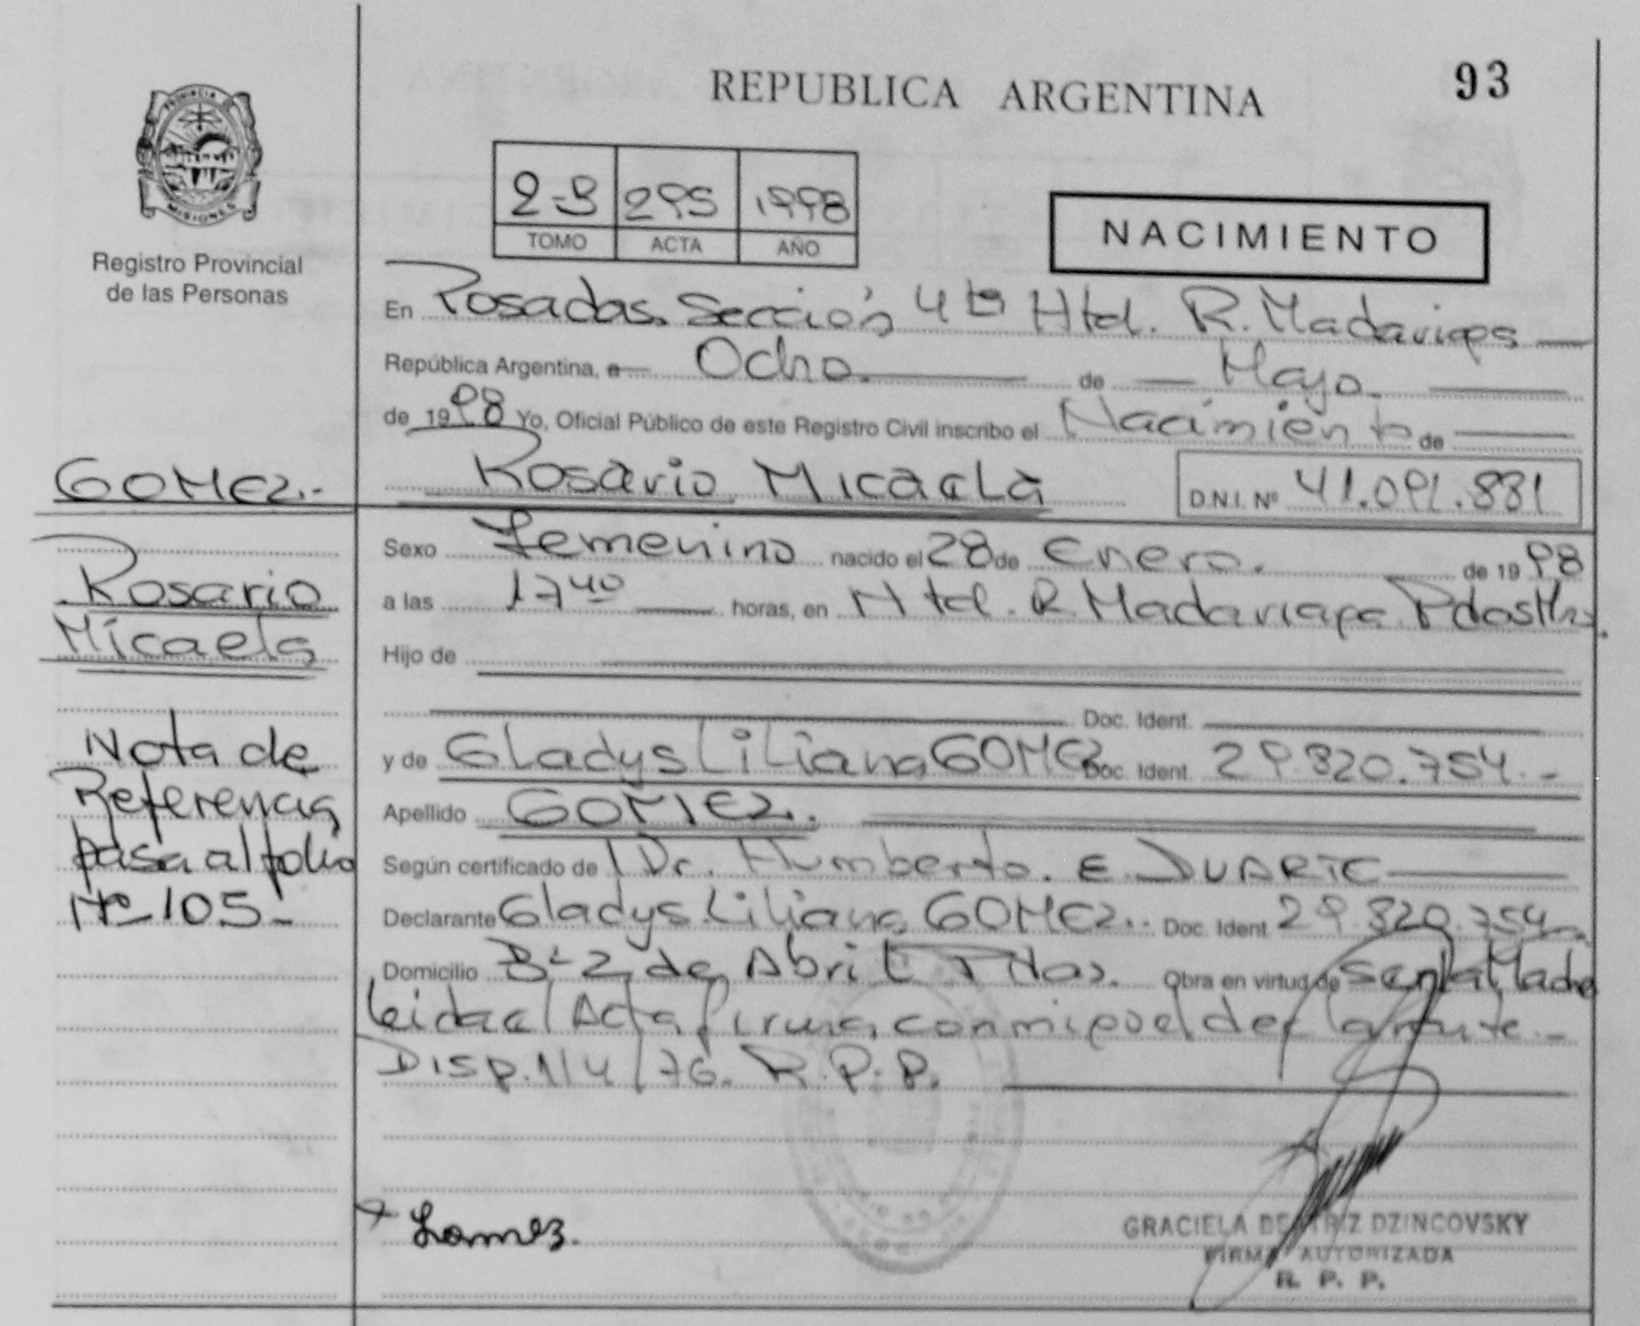 REPUBLICA ARGENTINA
93
PROVINCIA DE
MISIONES
Registro Provincial
de las Personas
2-B 295 1998
TOMO ACTA AÑO
NACIMIENTO
En Posadas. Sección 4ta Htal. R. Madariaga
República Argentina, a Ocho de Mayo
de 1998 Yo, Oficial Público de este Registro Civil inscribo el Nacimiento de
GOMEZ.-
Rosario Micaela
D.N.I. Nº 41.091.881
Sexo Femenino nacido el 28 de Enero. de 1998
Rosario
Micaela
a las 17 40 horas, en Htal. R. Madariaga Pdas Mns.
Hijo de
Doc. Ident.
y de Gladys Liliana GOMEZ Doc. Ident. 29.820.754.-
Nota de
Referencia
pasa al folio
Nº 105-
Apellido GOMEZ.
Según certificado de Dr. Humberto. E. DUARTE
Declarante Gladys Liliana GOMEZ.. Doc. Ident 29.820.754
Domicilio Bº 2 de Abril Pdas. Obra en virtud de ser la Madre
leida el Acta firma conmigo el declarante.-
DISP. 1/4/76. R.P.P.
Gomez.
GRACIELA BEATRIZ DZINCOVSKY
FIRMA AUTORIZADA
R. P. P.